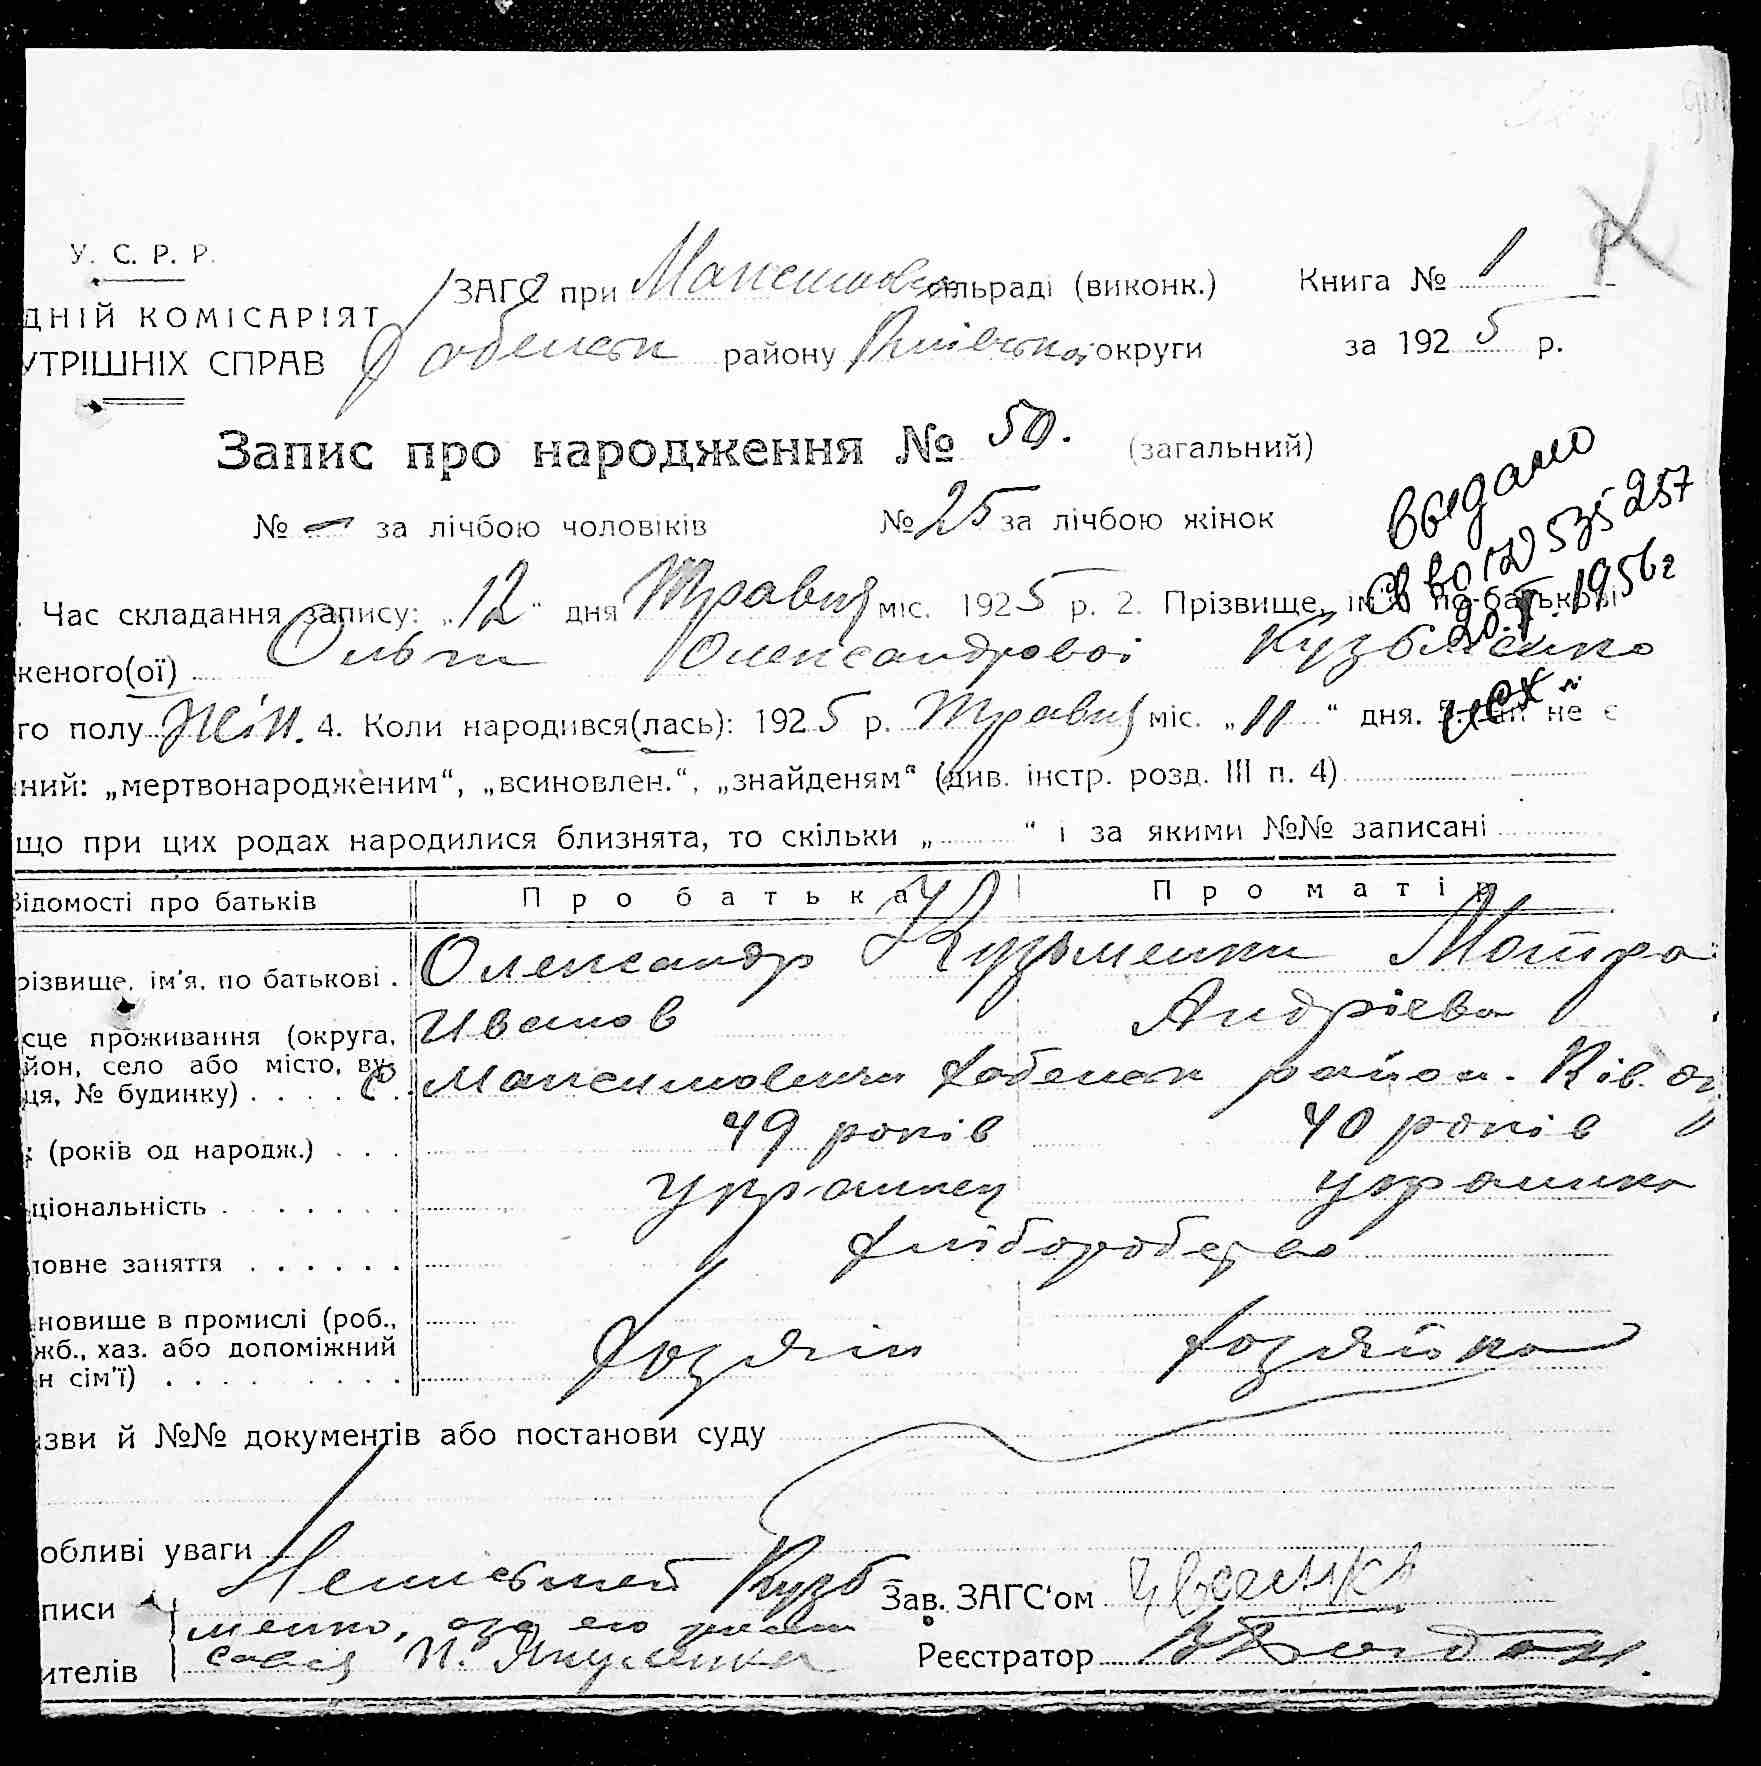 У. С. Р. Р.
ЗАГС при Максимов сільраді (виконк.) Книга № 1
ДНІЙ КОМІСАРІЯТ
УТРІШНІХ СПРАВ Хабенськ району Київської округи за 1925 р.
Запис про народження № 50. (загальний)
№ — за лічбою чоловіків № 25 за лічбою жінок
выдано
Св во 535257
20.V.1956г
. Час складання запису: „12“ дня Травня міс. 1925 р. 2. Прізвище, ім'я, по-батькові
женого(ої) Ольги Олександрової Кузьменко
го полу жін. 4. Коли народився(лась): 1925 р. Травня міс. „11“ дня. 5. не є
ний: „мертвонародженим“, „всиновлен.“, „знайденям“ (див. інстр. розд. III п. 4)
що при цих родах народилися близнята, то скільки „ “ і за якими №№ записані
Відомості про батьків Про батька Про матір
різвище, ім'я, по батькові . Олександр Кузьменки Мотра
Иванов Андріева
сце проживання (округа,
йон, село або місто, ву-
ця, № будинку) . . . . с. Максимовичи Хабенск район. Ків. ок
(років од народж.) . . . 49 років 40 років
ціональність . . . . . . . украинец украинка
ловне заняття . . . . . . хліборобство
новище в промислі (роб.,
жб., хаз. або допоміжний
н сім'ї) . . . . . . . . . Хозяін хозяйка
азви й №№ документів або постанови суду
обливі уваги
писи Неписьмен Кузь- Зав. ЗАГС'ом
менко, а за его
ителів Реєстратор